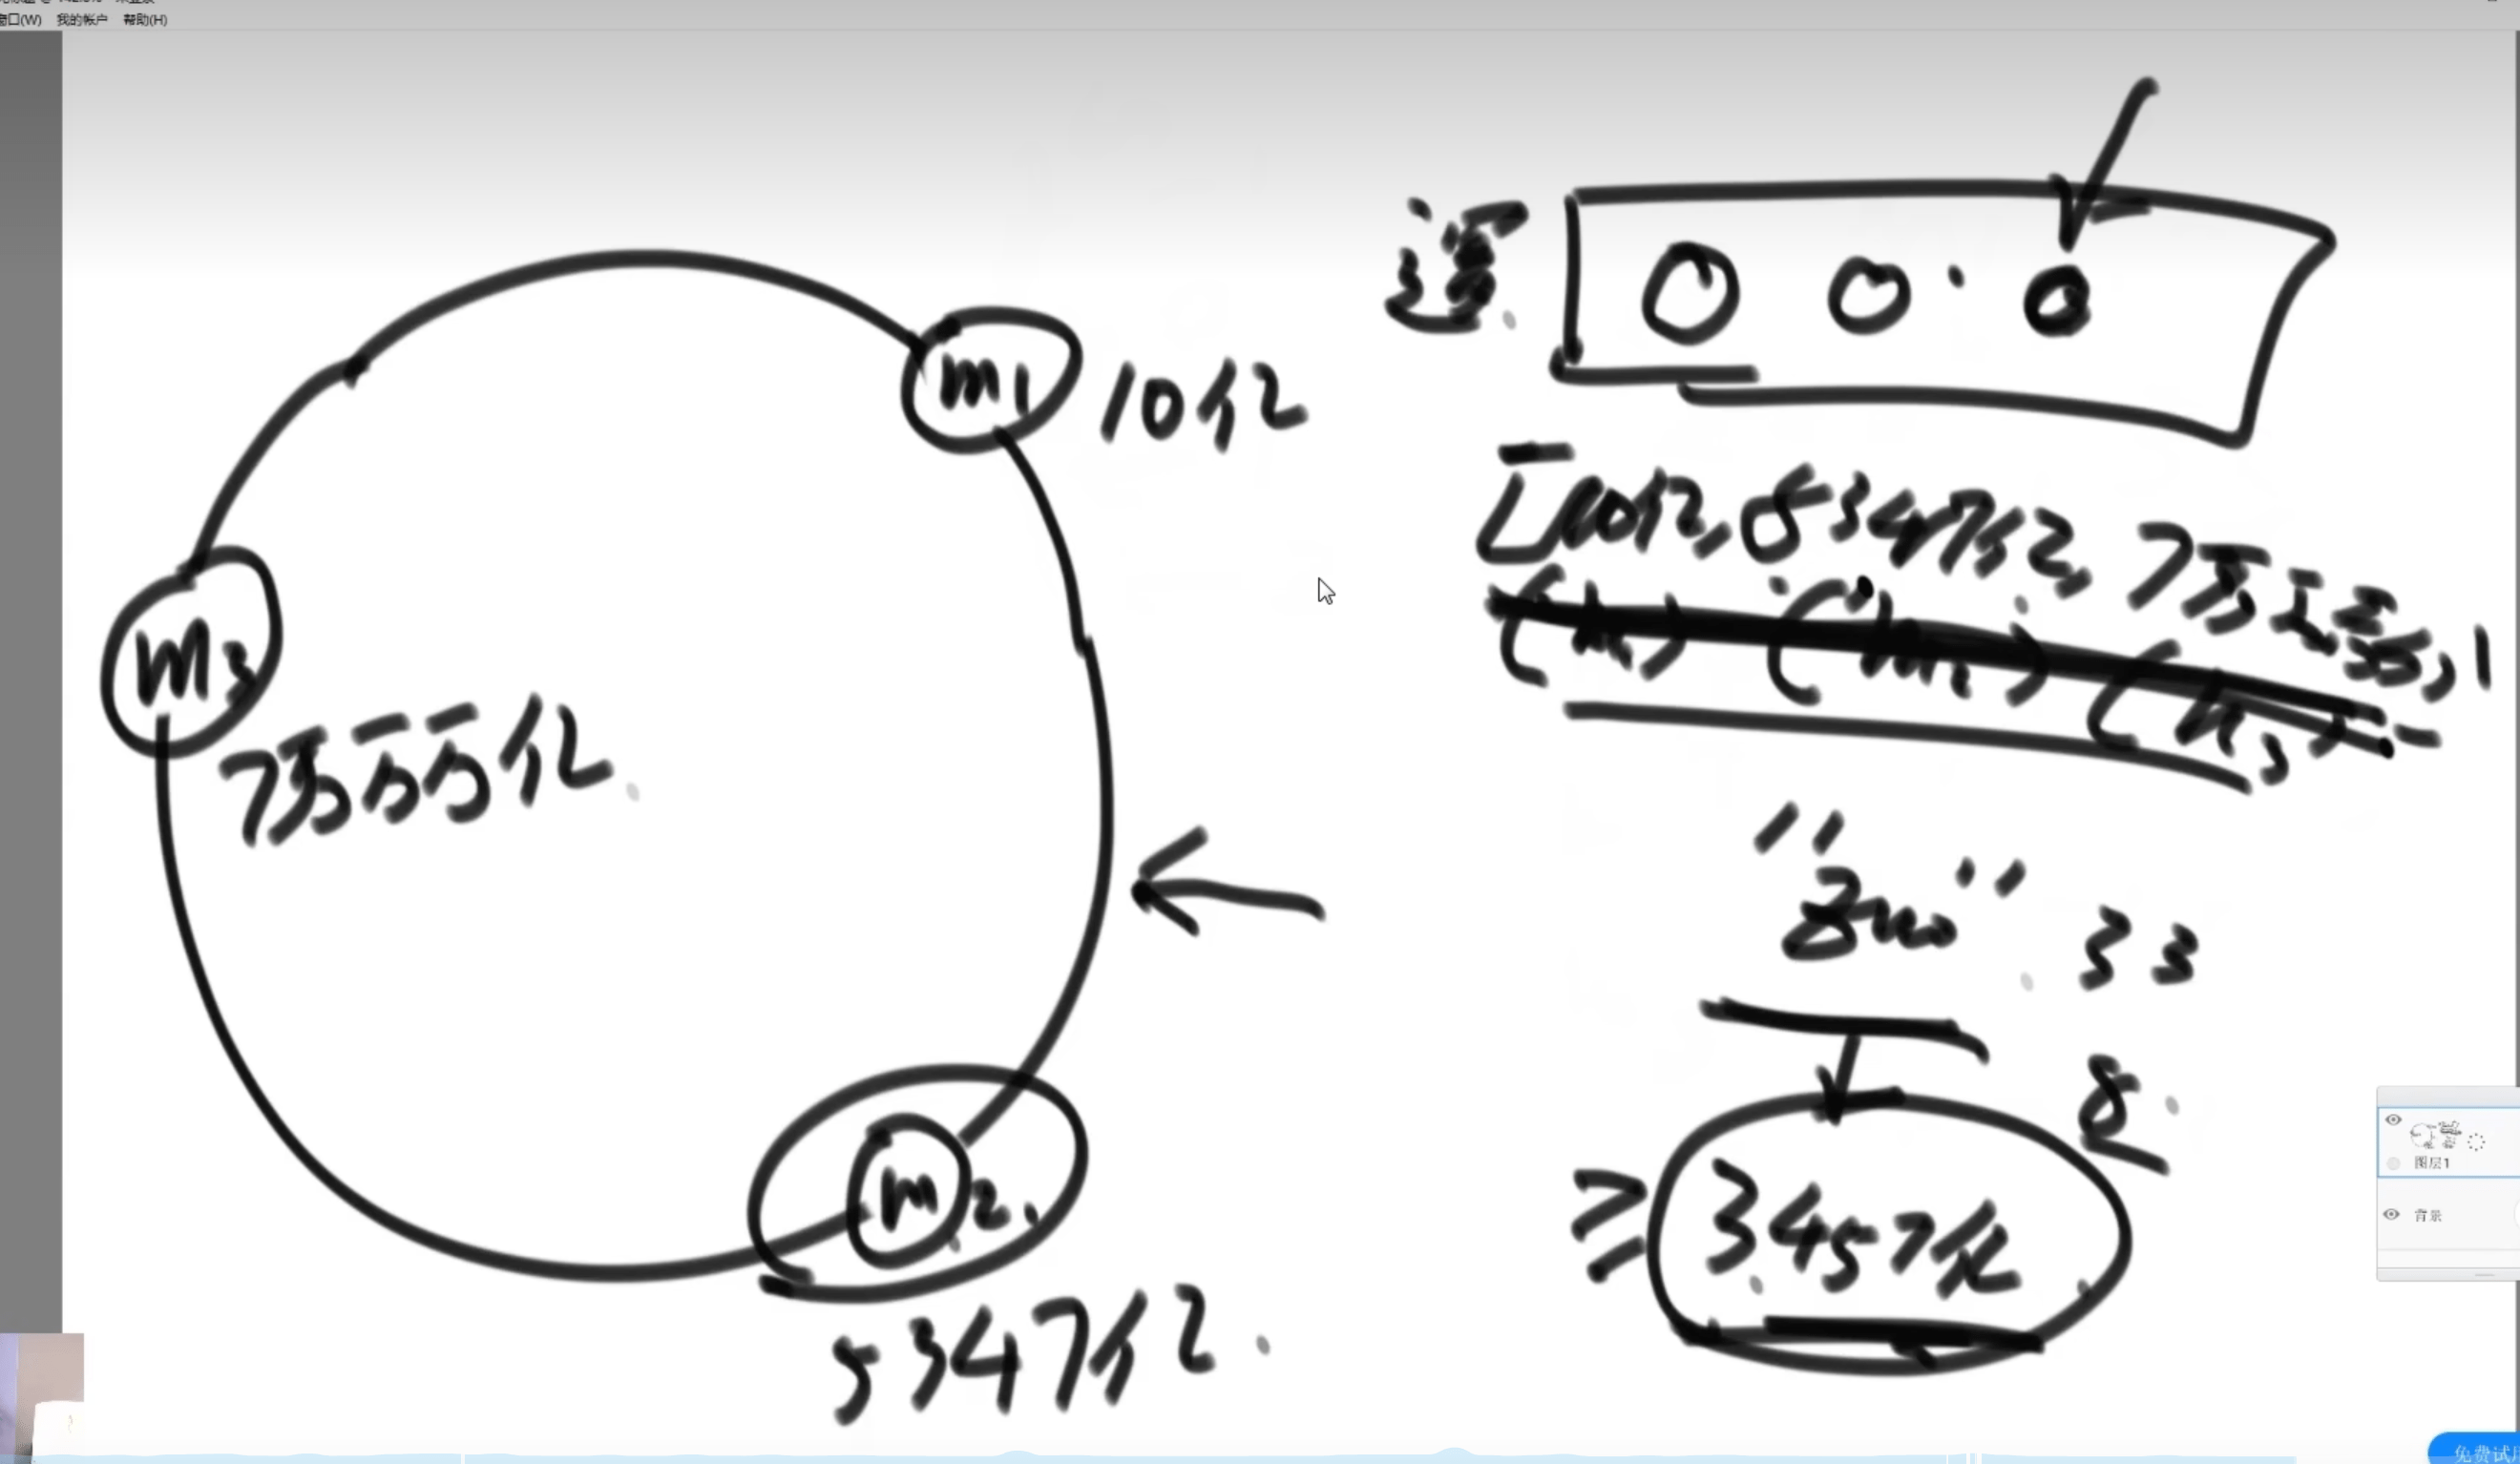 窗口(W) 我的帐户 帮助(H)
m1 10亿
m3
7万万亿
m2
5347亿
[10亿, 5347亿, 7万万亿]
(m1) (m2) (m3)
"Zuo" 33
8
≥ 3457亿
图层1
背景
免费试用